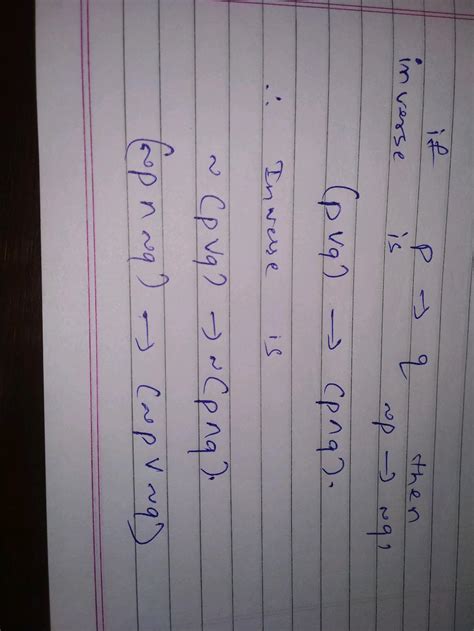 if p → q then
inverse is ~p → ~q,
(p∨q) → (p∧q).
∴ Inverse is
~(p∨q) → ~(p∧q).
(~p∧~q) → (~p∨~q)